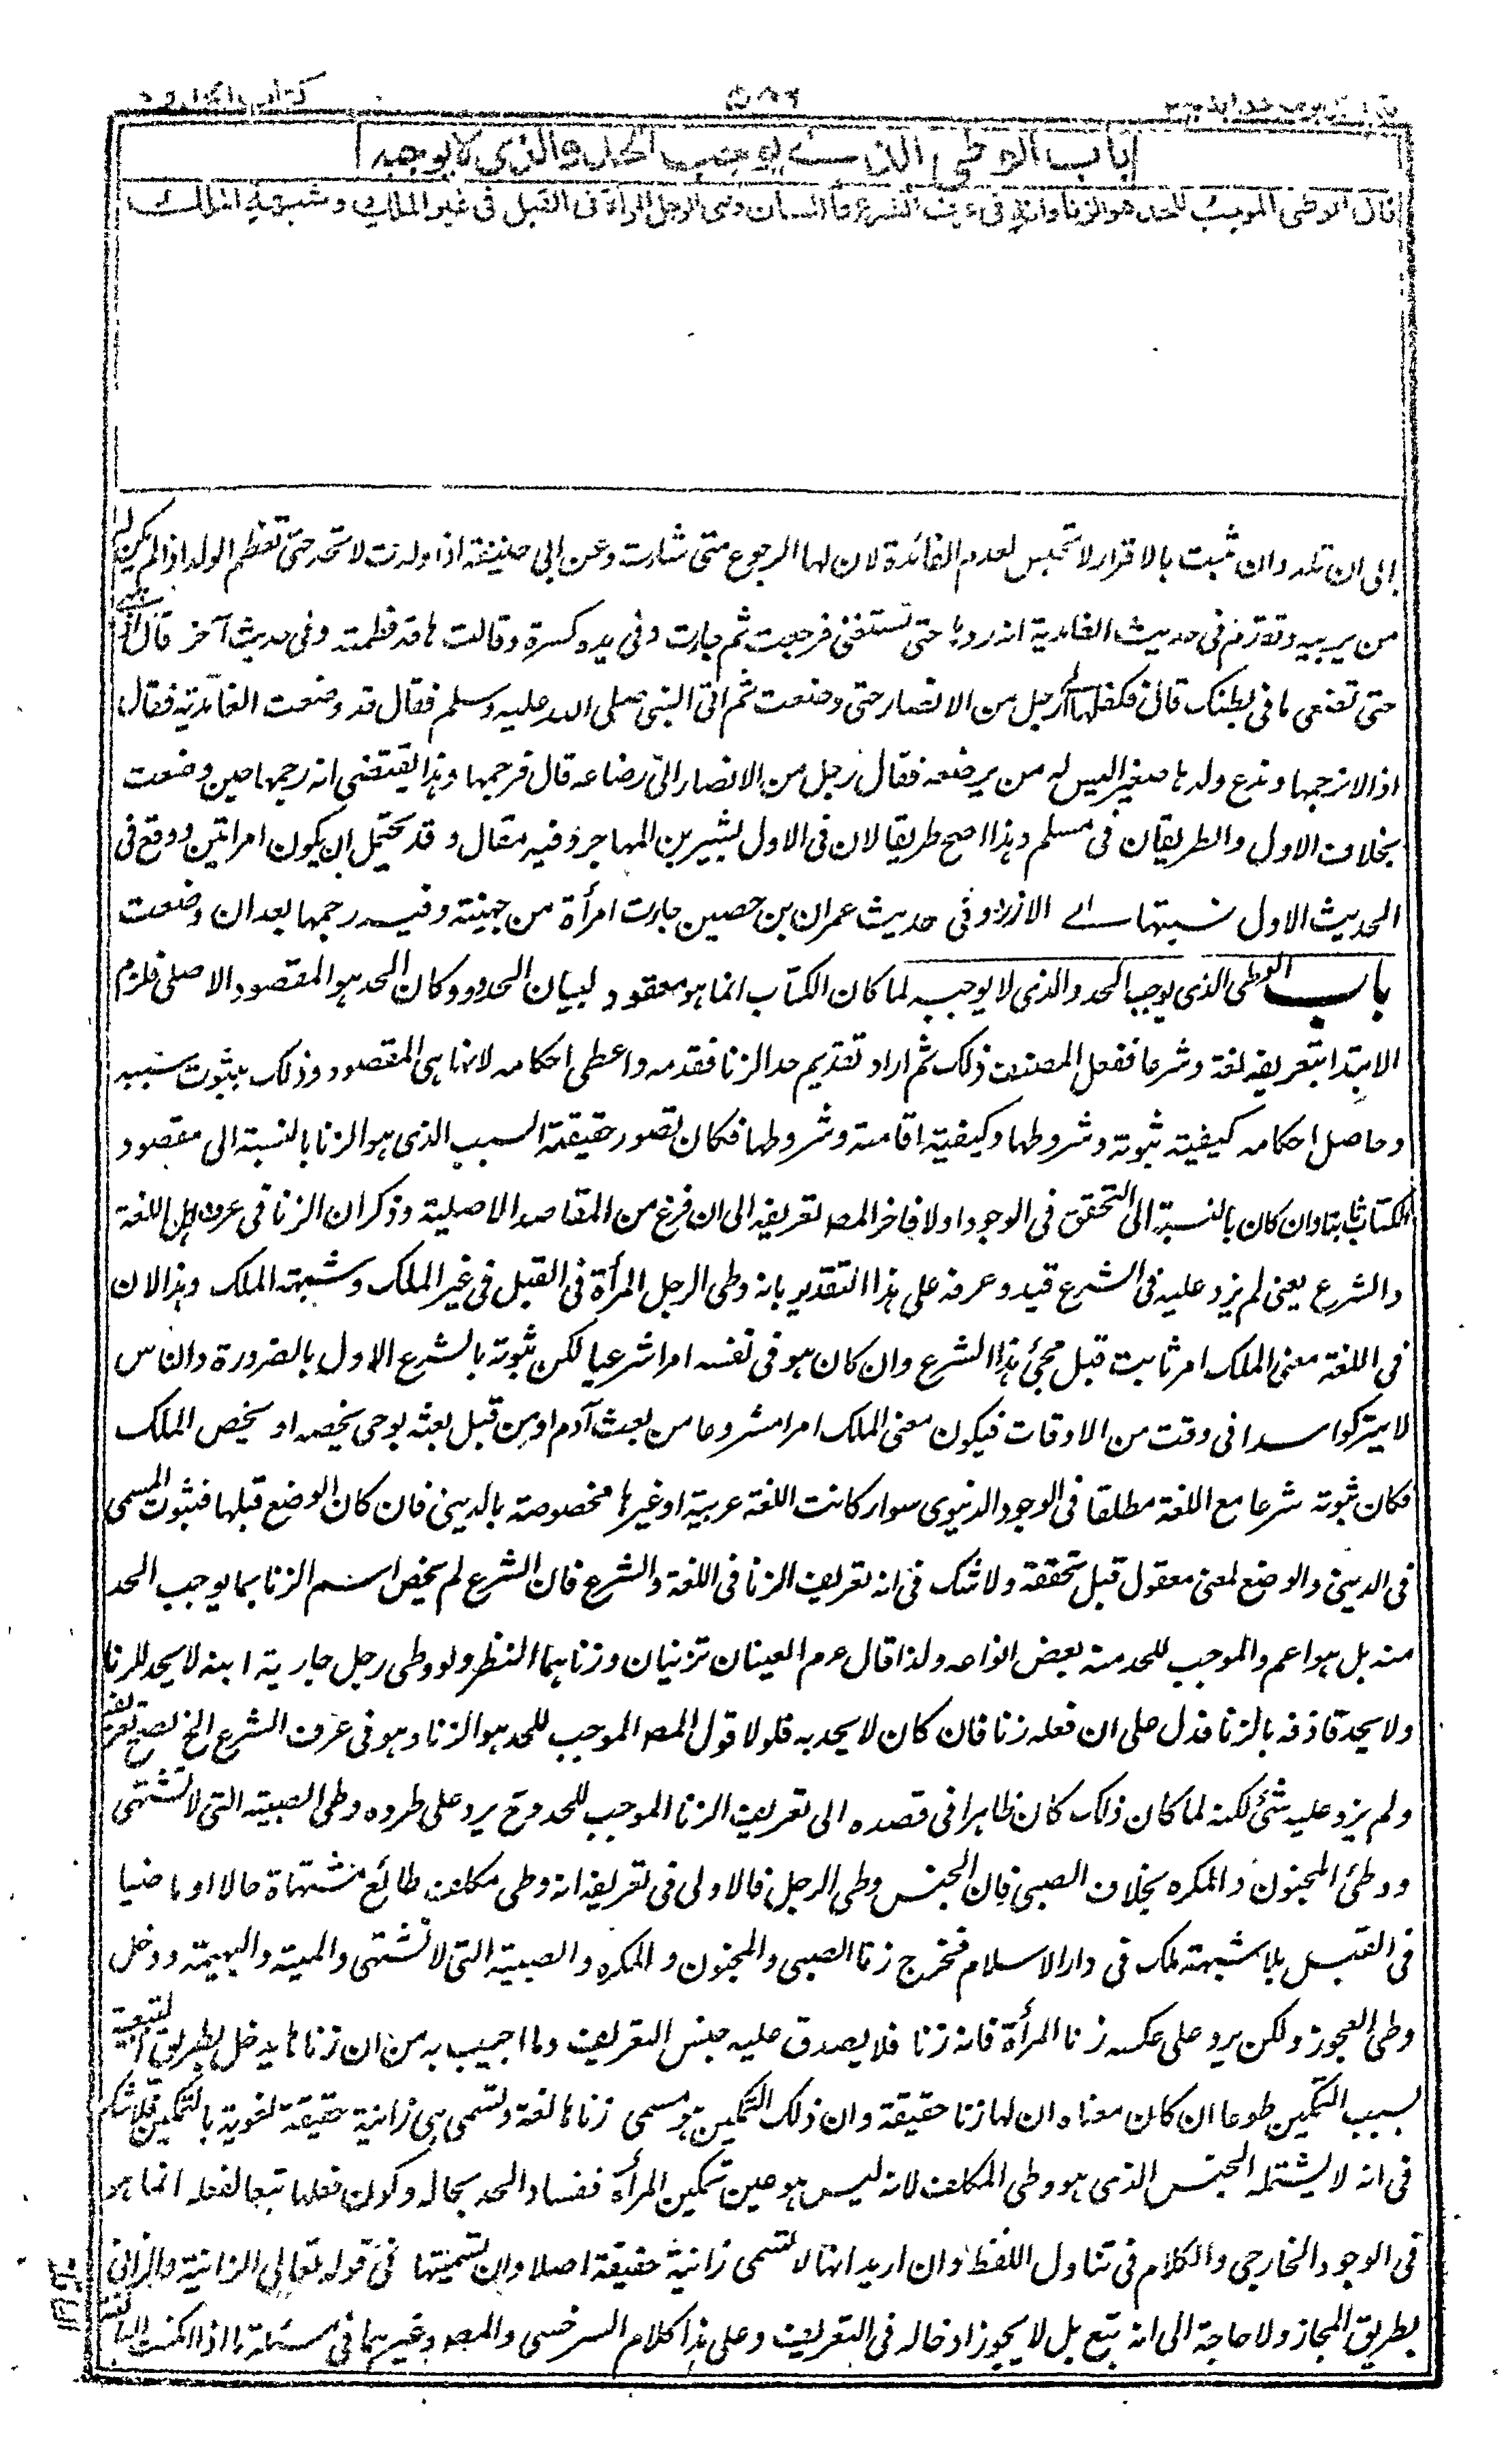 كتاب الحدود
باب الوطي الذي يوجب الحد والذي لا يوجبه
قال الوطي الموجب للحد هو الزنا وانه في عرف الشرع واللسان وطي الرجل المرأة في القبل في غير الملك وشبهة الملك
الى ان تلد وان ثبت بالاقرار لا تحبس لعدم الفائدة لان لها الرجوع متى شارت وعن ابي حنيفة اذا ولدت لا تحد حتى تفطم الولد اذا لم يكن له
من يربيه وتقدم في حديث الغامدية انه ردها حتى تستغني فرجعت ثم جارت وفي يده كسرة وقالت ها قد فطمته وفي حديث آخر قال
حتى تضعي ما في بطنك قال فكفلها رجل من الانصار حتى وضعت ثم اتى النبي صلى الله عليه وسلم فقال قد وضعت الغامدية فقال
اذا لا نرجمها وندع ولدها صغيرا ليس له من يرضعه فقال رجل من الانصار الى رضاعه قال فرجمها وهذا يقتضي انه رجمها حين وضعت
بخلاف الاول والطريقان في مسلم وهذا اصح طريقا لان في الاول بشير بن المهاجر وفيه مقال وقد يحتمل ان يكون امرأتين ووقع في
الحديث الاول نسبتها الى الازد وفي حديث عمران بن حصين جارت امرأة من جهينة وفيه رجمها بعد ان وضعت
باب الوطي الذي يوجب الحد والذي لا يوجبه لما كان الكتاب انما هو معقود لبيان الحدود وكان الحد هو المقصود الاصلي فلزم
الابتدا بتعريفه لغة وشرعا ففعل المصنف ذلك ثم اراد تقديم حد الزنا فقدمه واعطى احكامه لانها هي المقصود وذلك بثبوت سببه
وحاصل احكامه كيفية ثبوته وشروطها وكيفية اقامته وشروطها فكان تصور حقيقة السبب الذي هو الزنا بالنسبة الى مقصود
الكتاب ثابتا وان كان بالنسبة الى التحقق في الوجود اولا فاخر المصـ تعريفه الى ان فرغ من المقاصد الاصلية وذكر ان الزنا في عرف اهل اللغة
والشرع يعني لم يزد عليه في الشرع قيد وعرفه على هذا التقدير بانه وطي الرجل المرأة في القبل في غير الملك وشبهة الملك وهذا لان
في اللغة معنى الملك امر ثابت قبل مجئ هذا الشرع وان كان هو في نفسه امرا شرعيا لكن ثبوته بالشرع الاول بالضرورة والناس
لا يتركوا سدا في وقت من الاوقات فيكون معنى الملك امرا مشروعا من بعث آدم او من قبل بعثه بوحي يخصه او يخص الملك
فكان ثبوته شرعا مع اللغة مطلقا في الوجود الدنيوي سوار كانت اللغة عربية او غيرها مخصوصة بالديني فان كان الوضع قبلها فثبوت المسمى
في الديني والوضع لمعنى معقول قبل تحققه ولا شك في انه تعريف الزنا في اللغة والشرع فان الشرع لم يخص اسم الزنا بما يوجب الحد
منه بل هو اعم والموجب للحد منه بعض انواعه ولذا قال عم العينان تزنيان وزناهما النظر ولو وطي رجل جارية ابنه لا يحد للزنا
ولا يحد قاذفه بالزنا فدل على ان فعله زنا فان كان لا يحد به فلولا قول المصـ الموجب للحد هو الزنا وهو في عرف الشرع الخ لصح تعريفه
ولم يزد عليه شئ لكنه لما كان ذلك كان ظاهرا في قصده الى تعريف الزنا الموجب للحد وح يرد على طرده وطي الصبية التي لا تشتهى
ووطئ المجنون والمكره بخلاف الصبي فان الجنس وطي الرجل فالاولى في تعريفه انه وطي مكلف طائع مشتهاة حالا او ماضيا
في القبل بلا شبهة ملك في دار الاسلام فخرج زنا الصبي والمجنون والمكره والصبية التي لا تشتهى والميتة والبهيمة ودخل
وطي العجوز ولكن يرد على عكسه زنا المرأة فانه زنا فلا يصدق عليه جنس التعريف وما اجيب به من ان زناها يدخل بطريق التبعية
بسبب التمكين طوعا ان كان معناه ان لها زنا حقيقة وان ذلك التمكين هو مسمى زناها لغة وتسمى هي زانية حقيقة لغوية بالتمكين فلا شك
في انه لا يشتمله الجنس الذي هو وطي المكلف لانه ليس هو عين تمكين المرأة ففساد الحد بحاله وكون فعلها تبعا لفعله انما هو
في الوجود الخارجي والكلام في تناول اللفظ وان اريد انها لا تسمى زانية حقيقة اصلا وان تسميتها في قوله تعالى الزانية والزاني
بطريق المجاز ولا حاجة الى انه تبع بل لا يجوز ادخاله في التعريف وعلى هذا كلام السرخسي والمصـ وغيرهما في مسئلة ما اذا امكنت البالغة